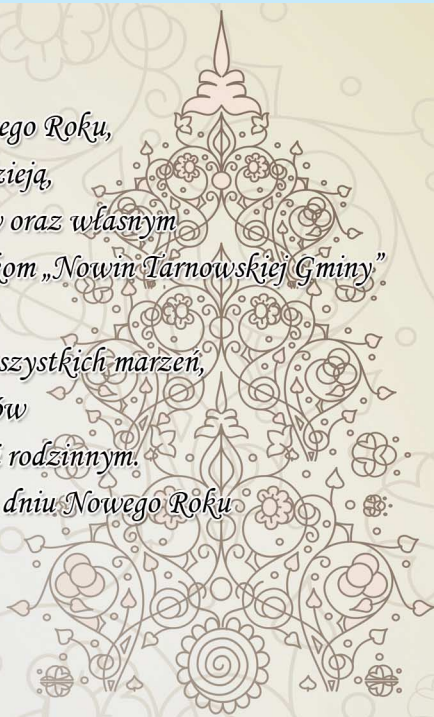 ego Roku,
zieją,
oraz własnym
kom „Nowin Tarnowskiej Gminy”
szystkich marzeń,
ów
i rodzinnym.
dniu Nowego Roku